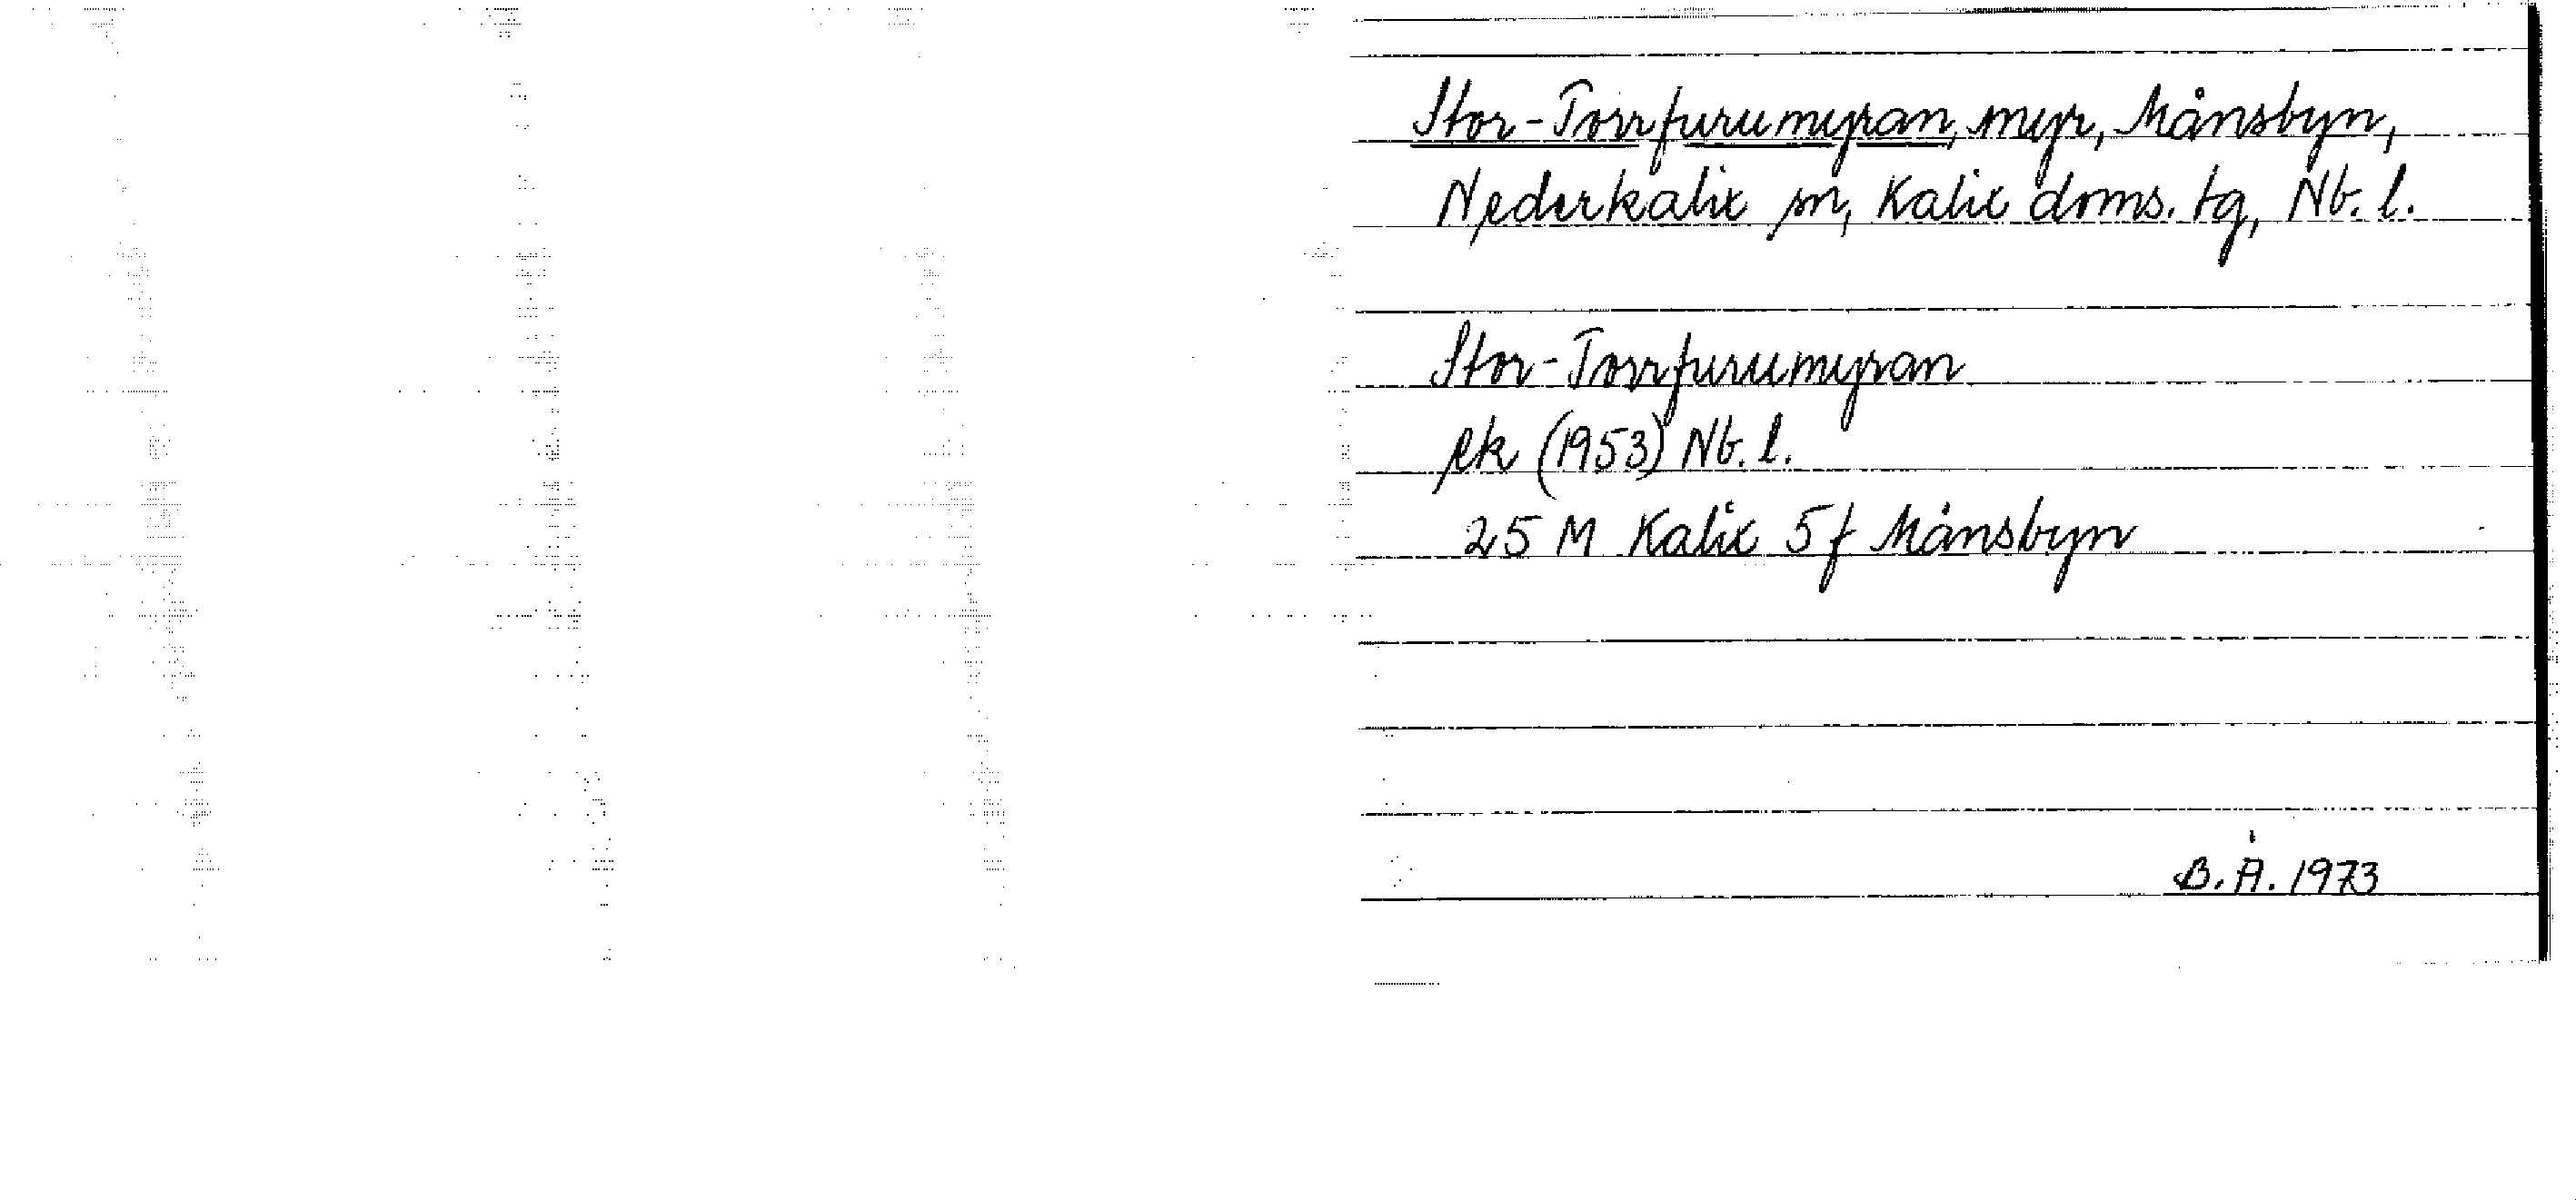 Stor-Torrfurumyran, myr, Månsbyn,
Nederkalix sn, Kalix doms. tg, Nb. l.
Stor-Torrfurumyran
ek (1953) Nb. l.
25 M Kalix 5 f Månsbyn
B. Å. 1973